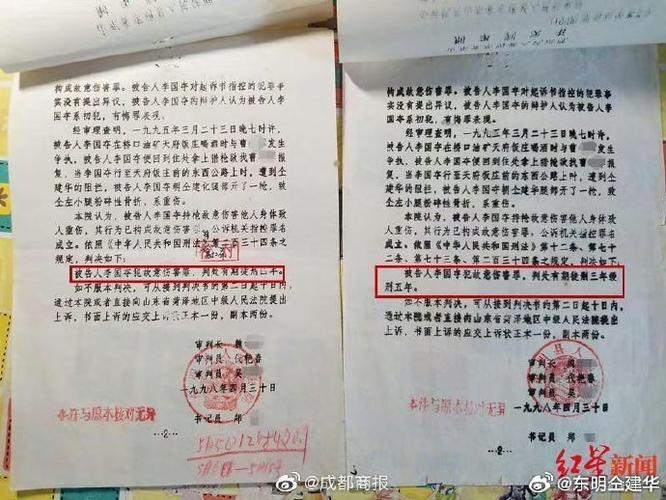 构成故意伤害罪。被告人李国夺对起诉书指控的犯罪事
实没有提出异议，被告人李国夺的辩护人认为被告人李
国夺系初犯，有悔罪表现。
经审理查明，一九九五年三月二十三日晚七时许，
被告人李国夺在桥口油矿天府饭庄喝酒时与曹 发生
争执。被告人李国夺便回到住处拿上猎枪欲找曹
报复，当李国夺行至天府饭庄前的东西公路上时，遭到
仝建华的阻拦，被告人李国夺朝仝建华腿部开了一枪，致
仝左小腿粉碎性骨折，系重伤。
本院认为，被告人李国夺持枪故意伤害他人身体致
人重伤，其行为已构成故意伤害罪，公诉机关指控罪名
成立。依照《中华人民共和国刑法》第二百三十四条之
规定，判决如下：
被告人李国夺犯故意伤害罪，判处有期徒刑三年。
如不服本判决，可从接到判决书的第二日起十日内，
通过本院或者直接向山东省菏泽地区中级人民法院提出
上诉，书面上诉的应交上诉状正本一份，副本两份。
审判长 魏
审判员 代艳春
审判员 吴
一九九八年四月三十日
本件与原本核对无异
书记员 郑
-2-
构成故意伤害罪。被告人李国夺对起诉书指控的犯罪事
实没有提出异议，被告人李国夺的辩护人认为被告人李
国夺系初犯，有悔罪表现。
经审理查明，一九九三年三月二十三日晚七时许，
被告人李国夺在桥口油矿天府饭庄喝酒时与曹 发生
争执。被告人李国夺便回到住处拿上猎枪欲找曹
报复，当李国夺行至天府饭庄前的东西公路上时，遭到
仝建华的阻拦，被告人李国夺朝仝建华腿部开了一枪，致
仝左小腿粉碎性骨折，系重伤。
本院认为，被告人李国夺持枪故意伤害他人身体致
人重伤，其行为已构成故意伤害罪，公诉机关指控罪名
成立。依照《中华人民共和国刑法》第十二条、第七十
二条、第七十三条、第二百三十四条之规定，判决如下：
被告人李国夺犯故意伤害罪，判处有期徒刑三年缓
刑五年。
如不服本判决，可从接到判决书的第二日起十日内，
通过本院或者直接向山东省菏泽地区中级人民法院提出
上诉，书面上诉的应交上诉状正本一份，副本两份。
审判长 魏
审判员 代艳春
审判员 吴
一九九八年四月三十日
本件与原本核对无异
书记员 郑
-2-
红星新闻
@成都商报
@东明仝建华